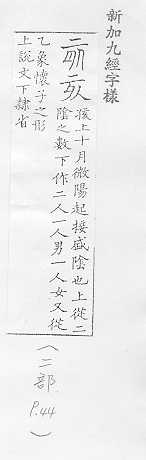 新加九經字樣
孩上十月微陽起接盛陰也上從二
陰之數下作二人一人男一人女又從
乙象懷子之形
上說文下隸省
(二部
P.44)